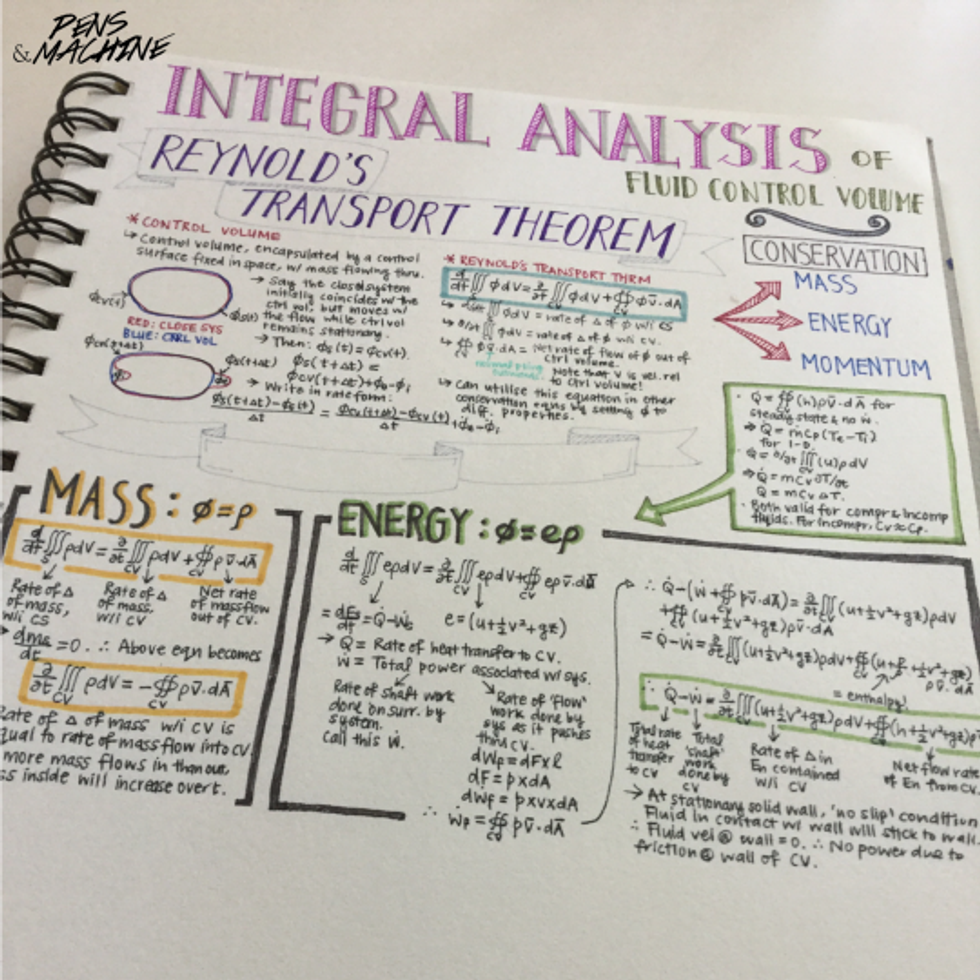 PENS
& MACHINE
INTEGRAL ANALYSIS OF
FLUID CONTROL VOLUME
REYNOLD'S
TRANSPORT THEOREM
* CONTROL VOLUME
↳ Control volume, encapsulated by a control
surface fixed in space, w/ mass flowing thru.
→ Say the closed system
initially coincides w/ the
ctrl vol, but moves w/
the flow while ctrl vol
remains stationary.
→ Then: ϕs(t) = ϕcv(t).
ϕcv(t)
ϕs(t)
RED: CLOSE SYS
BLUE: CNRL VOL
ϕs(t+Δt)
ϕs(t+Δt) =
ϕcv(t+Δt)+ϕo-ϕi
→ Write in rate form:
ϕs(t+Δt)-ϕs(t) / Δt = ϕcv(t+Δt)-ϕcv(t) / Δt + ϕ̇o-ϕ̇i
* REYNOLD'S TRANSPORT THRM
d/dt ∭s ϕdV = ∂/∂t ∭cv ϕdV + ∯cv ϕv̄.dĀ
↳ d/dt ∭ ϕdV = rate of Δ of ϕ w/i CS
↳ ∂/∂t ∭ ϕdV = rate of Δ of ϕ w/i CV.
↳ ∯ ϕv̄.dA = Net rate of flow of ϕ out of
ctrl volume.
Note that V is vel. rel
to ctrl volume!
↳ Can utilise this equation in other
conservation eqns by setting ϕ to
diff. properties.
CONSERVATION
MASS
ENERGY
MOMENTUM
• Q̇ = ∯(h)ρv̄.dĀ for
steady state & no ẇ.
⇒ Q̇ = ṁcp(Te-Ti)
for 1-D.
• Q̇ = ∂/∂t ∭cv (u)ρdV
⇒ Q̇ = mCv∂T/∂t
Q = mCvΔT.
• Both valid for compr & incomp
fluids. For incompr, Cv≈Cp.
MASS: ϕ=ρ
d/dt ∭s ρdV = ∂/∂t ∭cv ρdV + ∯cv ρv̄.dĀ
Rate of Δ
of mass,
w/i CS
Rate of Δ
of mass.
w/i CV
Net rate
of mass flow
out of CV.
→ dms/dt = 0. ∴ Above eqn becomes
∂/∂t ∭cv ρdV = -∯cv ρv̄.dĀ
Rate of Δ of mass w/i CV is
equal to rate of mass flow into CV
more mass flows in than out,
inside will increase over t.
ENERGY: ϕ=eρ
d/dt ∭s eρdV = ∂/∂t ∭cv eρdV + ∯cv eρv̄.dĀ
= dEs/dt = Q̇-Ẇs
e = (u+½v²+gz)
→ Q̇ = Rate of heat transfer to CV.
Ẇ = Total power associated w/ sys.
Rate of shaft work
done on surr. by
system.
Call this ẇ.
Rate of 'flow'
work done by
sys as it pushes
thru CV.
dWp = dF×l
dF = p×dA
dẆp = p×v×dA
∴ Ẇp = ∯cv pv̄.dĀ
∴ Q̇-(Ẇ+∯cv pv̄.dĀ) = ∂/∂t ∭cv (u+½v²+gz)ρdV
+∯cv (u+½v²+gz)ρv̄.dA
= Q̇-Ẇ = ∂/∂t ∭cv (u+½v²+gz)ρdV+∯cv (u+p/ρ+½v²+gz)
ρv̄.dA
= enthalpy!
∴ Q̇-Ẇ = ∂/∂t ∭cv (u+½v²+gz)ρdV+∯cv (h+½v²+gz)
Total rate
of heat
transfer
to CV
Total
'shaft'
work
done by
CV
Rate of Δ in
En contained
w/i CV
Net flow rate
of En from CV.
→ At stationary solid wall, 'no slip' condition
Fluid in contact w/ wall will stick to wall.
∴ Fluid vel @ wall = 0. ∴ No power due to
friction @ wall of CV.